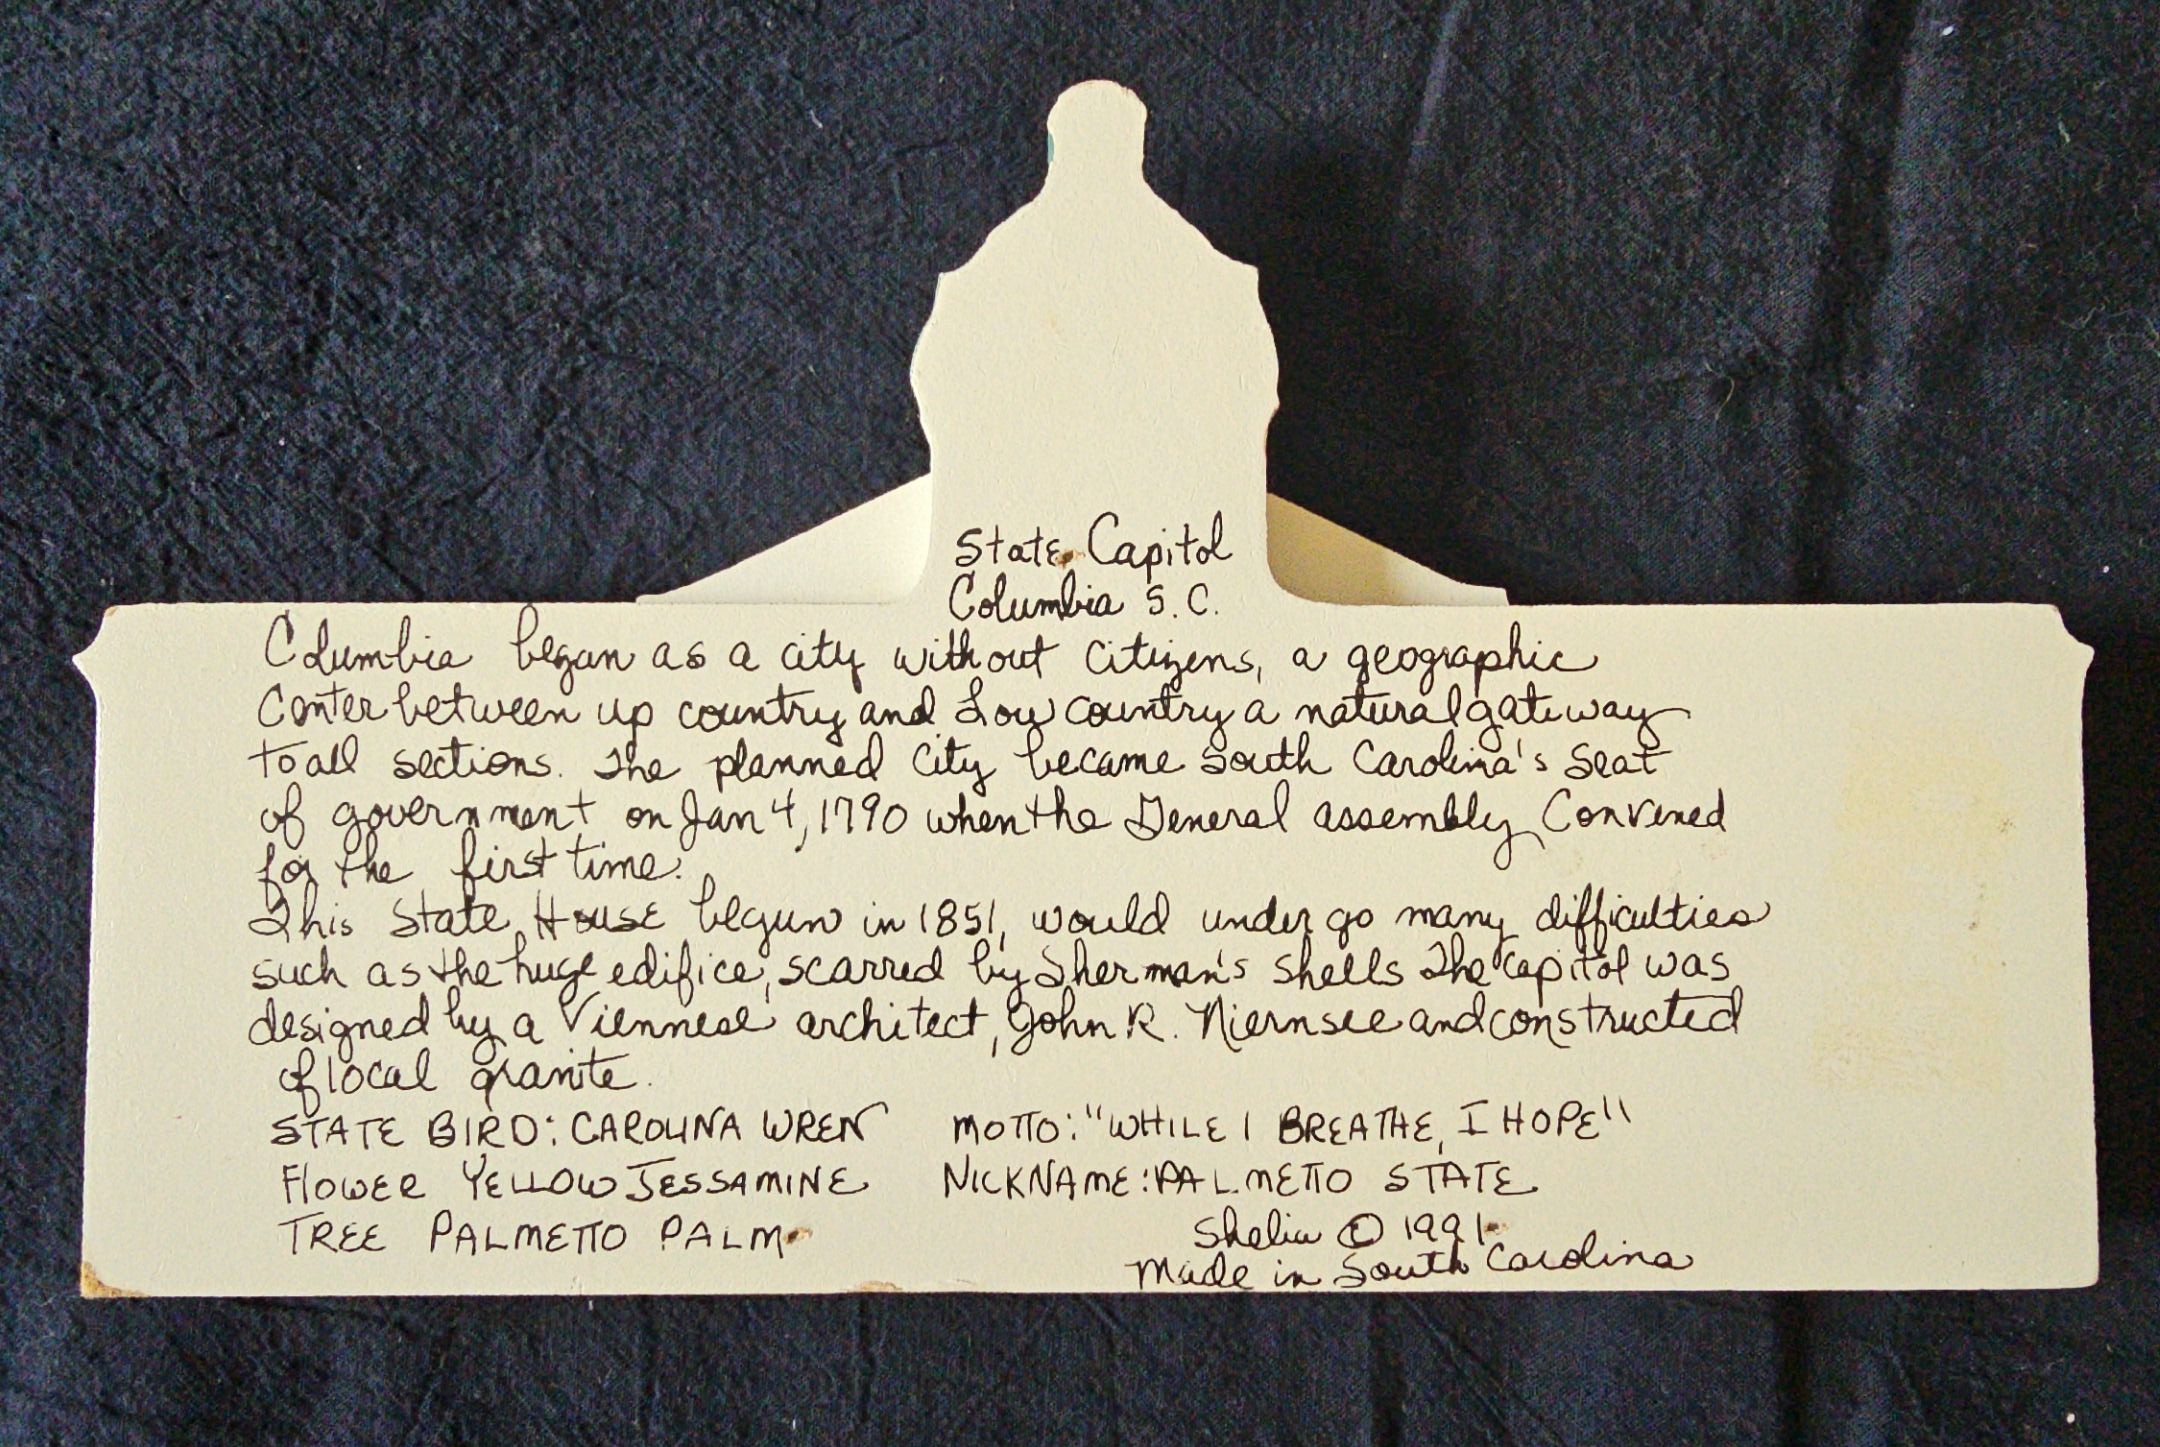 State Capitol
Columbia S.C.
Columbia began as a city without citizens, a geographic
Center between up country and Low country a natural gateway
to all sections. The planned City became South Carolina's Seat
of government on Jan 4, 1790 when the General assembly Convened
for the first time.
This State House begun in 1851, would under go many difficulties
such as the huge edifice, scarred by Sherman's shells The Capitol was
designed by a Viennese architect, John R. Niernsee and constructed
of local granite.
STATE BIRD: CAROLINA WREN MOTTO: "WHILE I BREATHE, I HOPE"
Flower YELLOW JESSAMINE NICKNAME: PALMETTO STATE
TREE PALMETTO PALM
Shelia © 1991
Made in South Carolina